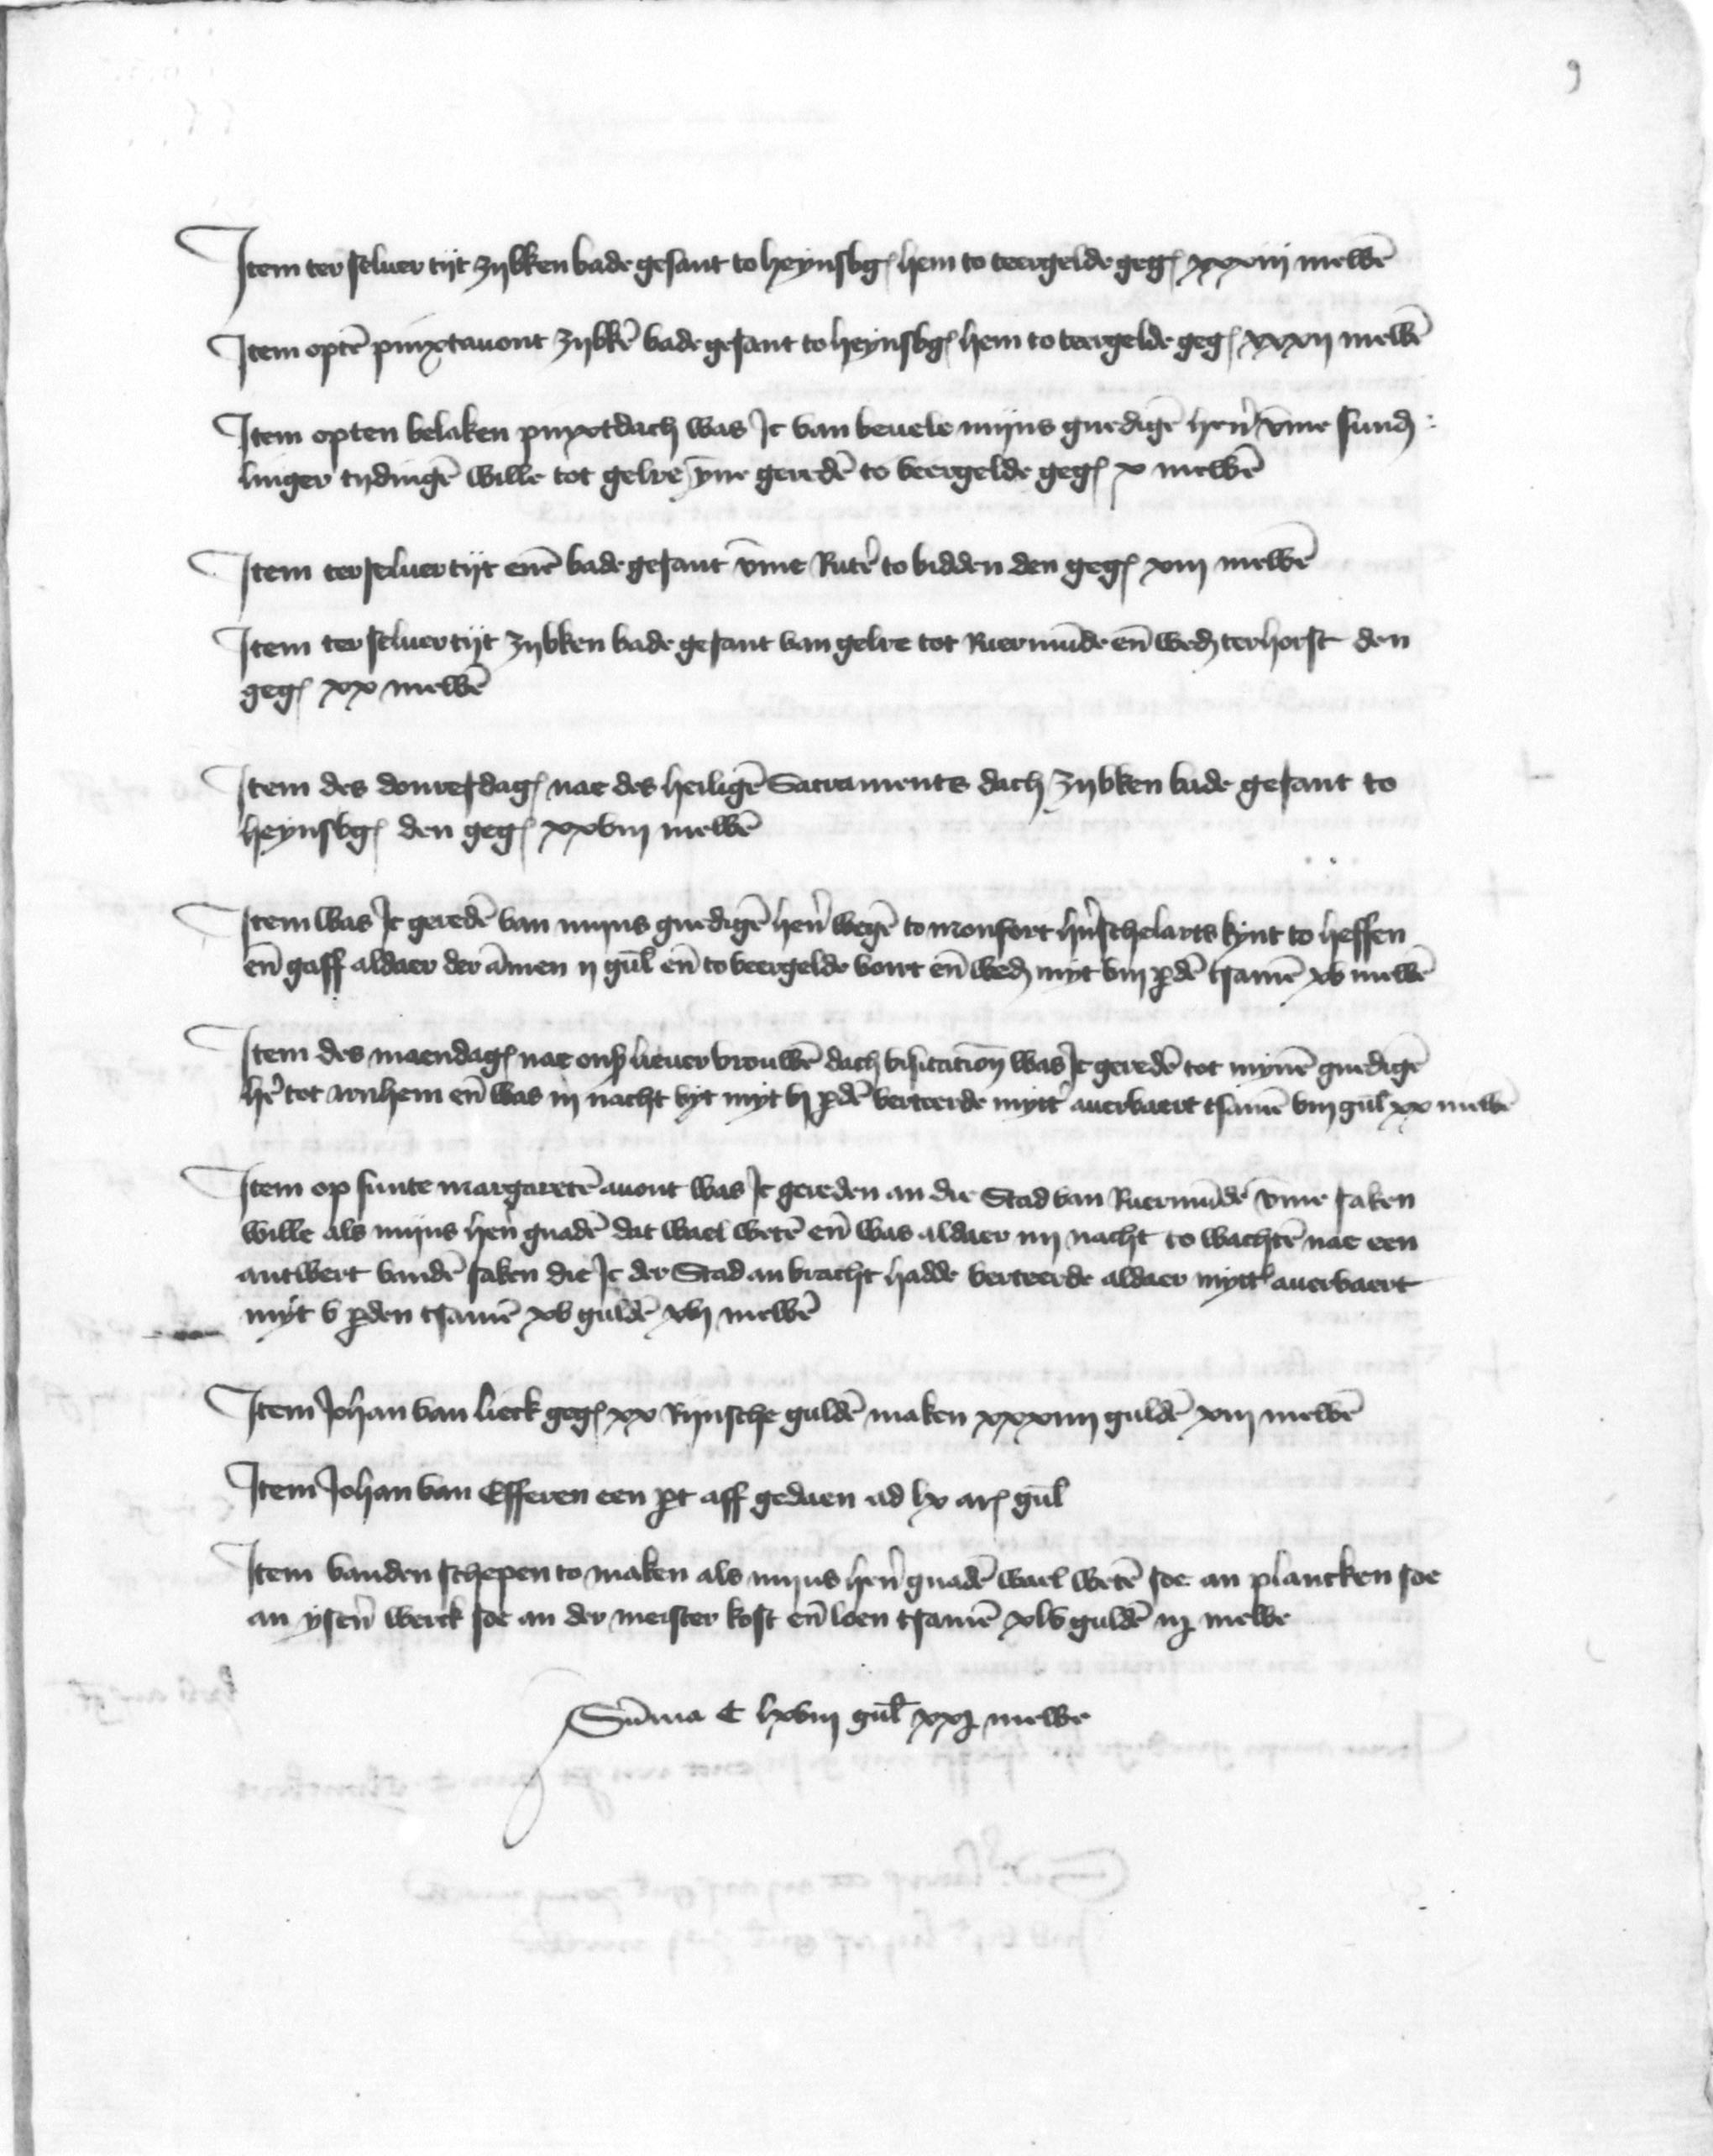 9
Item ter seluer tijt zijbken bade gesant to heynsbg hem to teergelde geg xxxiij mewē
Item optē pinxtauont zijbkē bade gesant to heynsbg hem to teergelde geg xxxij mewē
Item opten belaken pinxtdach was Ic van beuele mijns gnedigē hern̄ v̄me sund
linger tydingē wille tot gelre ynne geredē to veergelde geg x mewē
Item ter seluer tijt enē bade gesant v̄me Ruterꝰ to bidden den geg xiij mewē
Item ter seluer tijt zijbken bade gesant van gelre tot Ruermūde en̄ wed terhorst den
geg xx mewē
Item des donresdag nae des heiligē Sacraments dach zijbken bade gesant to
heynsbg den geg xxviij mewē
Item was Ic geredē van mijns gnedigē hern̄ wegē to monfort hrn̄ schelarts kynt to heffen
en̄ gaff aldaer der āmen ij gul̄ en̄ to veergelde vort en̄ wed myt viij p̱dē tsamē xv mewē
Item des maendag nae ons lieuer vrouwē dach visitation̄ was Ic geredē tot mynē gnedigē
hē tot arnhem en̄ was iij nacht vyt myt vj p̱dē verteerde mytt auervaert tsamē viij gul̄ xx mewē
Item op sunte margaretē auont was Ic gereden an die Stad van Ruermūde v̄me saken
wille als mijns hern̄ gnadē dat wael wetē en̄ was aldaer iiij nacht to wachtē nae een
antwert vandē saken die Ic der Stad an bracht hadde verteerde aldaer mytt auervaert
myt v p̱den tsamē xv guldē xvj mewē
Item Johan van lieck geg xx Rijnsche guldē maken xxxiiij guldē xiij mewē
Item Johan van Efferen een p̱t aff gedaen ad lx ar gul̄
Item vanden schepen to maken als mijns hern̄ gnadē wael wetē soe an plancken soe
an ysern̄ werck soe an der meister kost en̄ loen tsamē xlv guldē iij mewe
Sūma C lxviij gul̄ xxj mewe